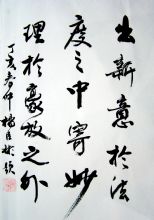 出新意於法
度之中寄妙
理於豪放之外
丁亥春仲